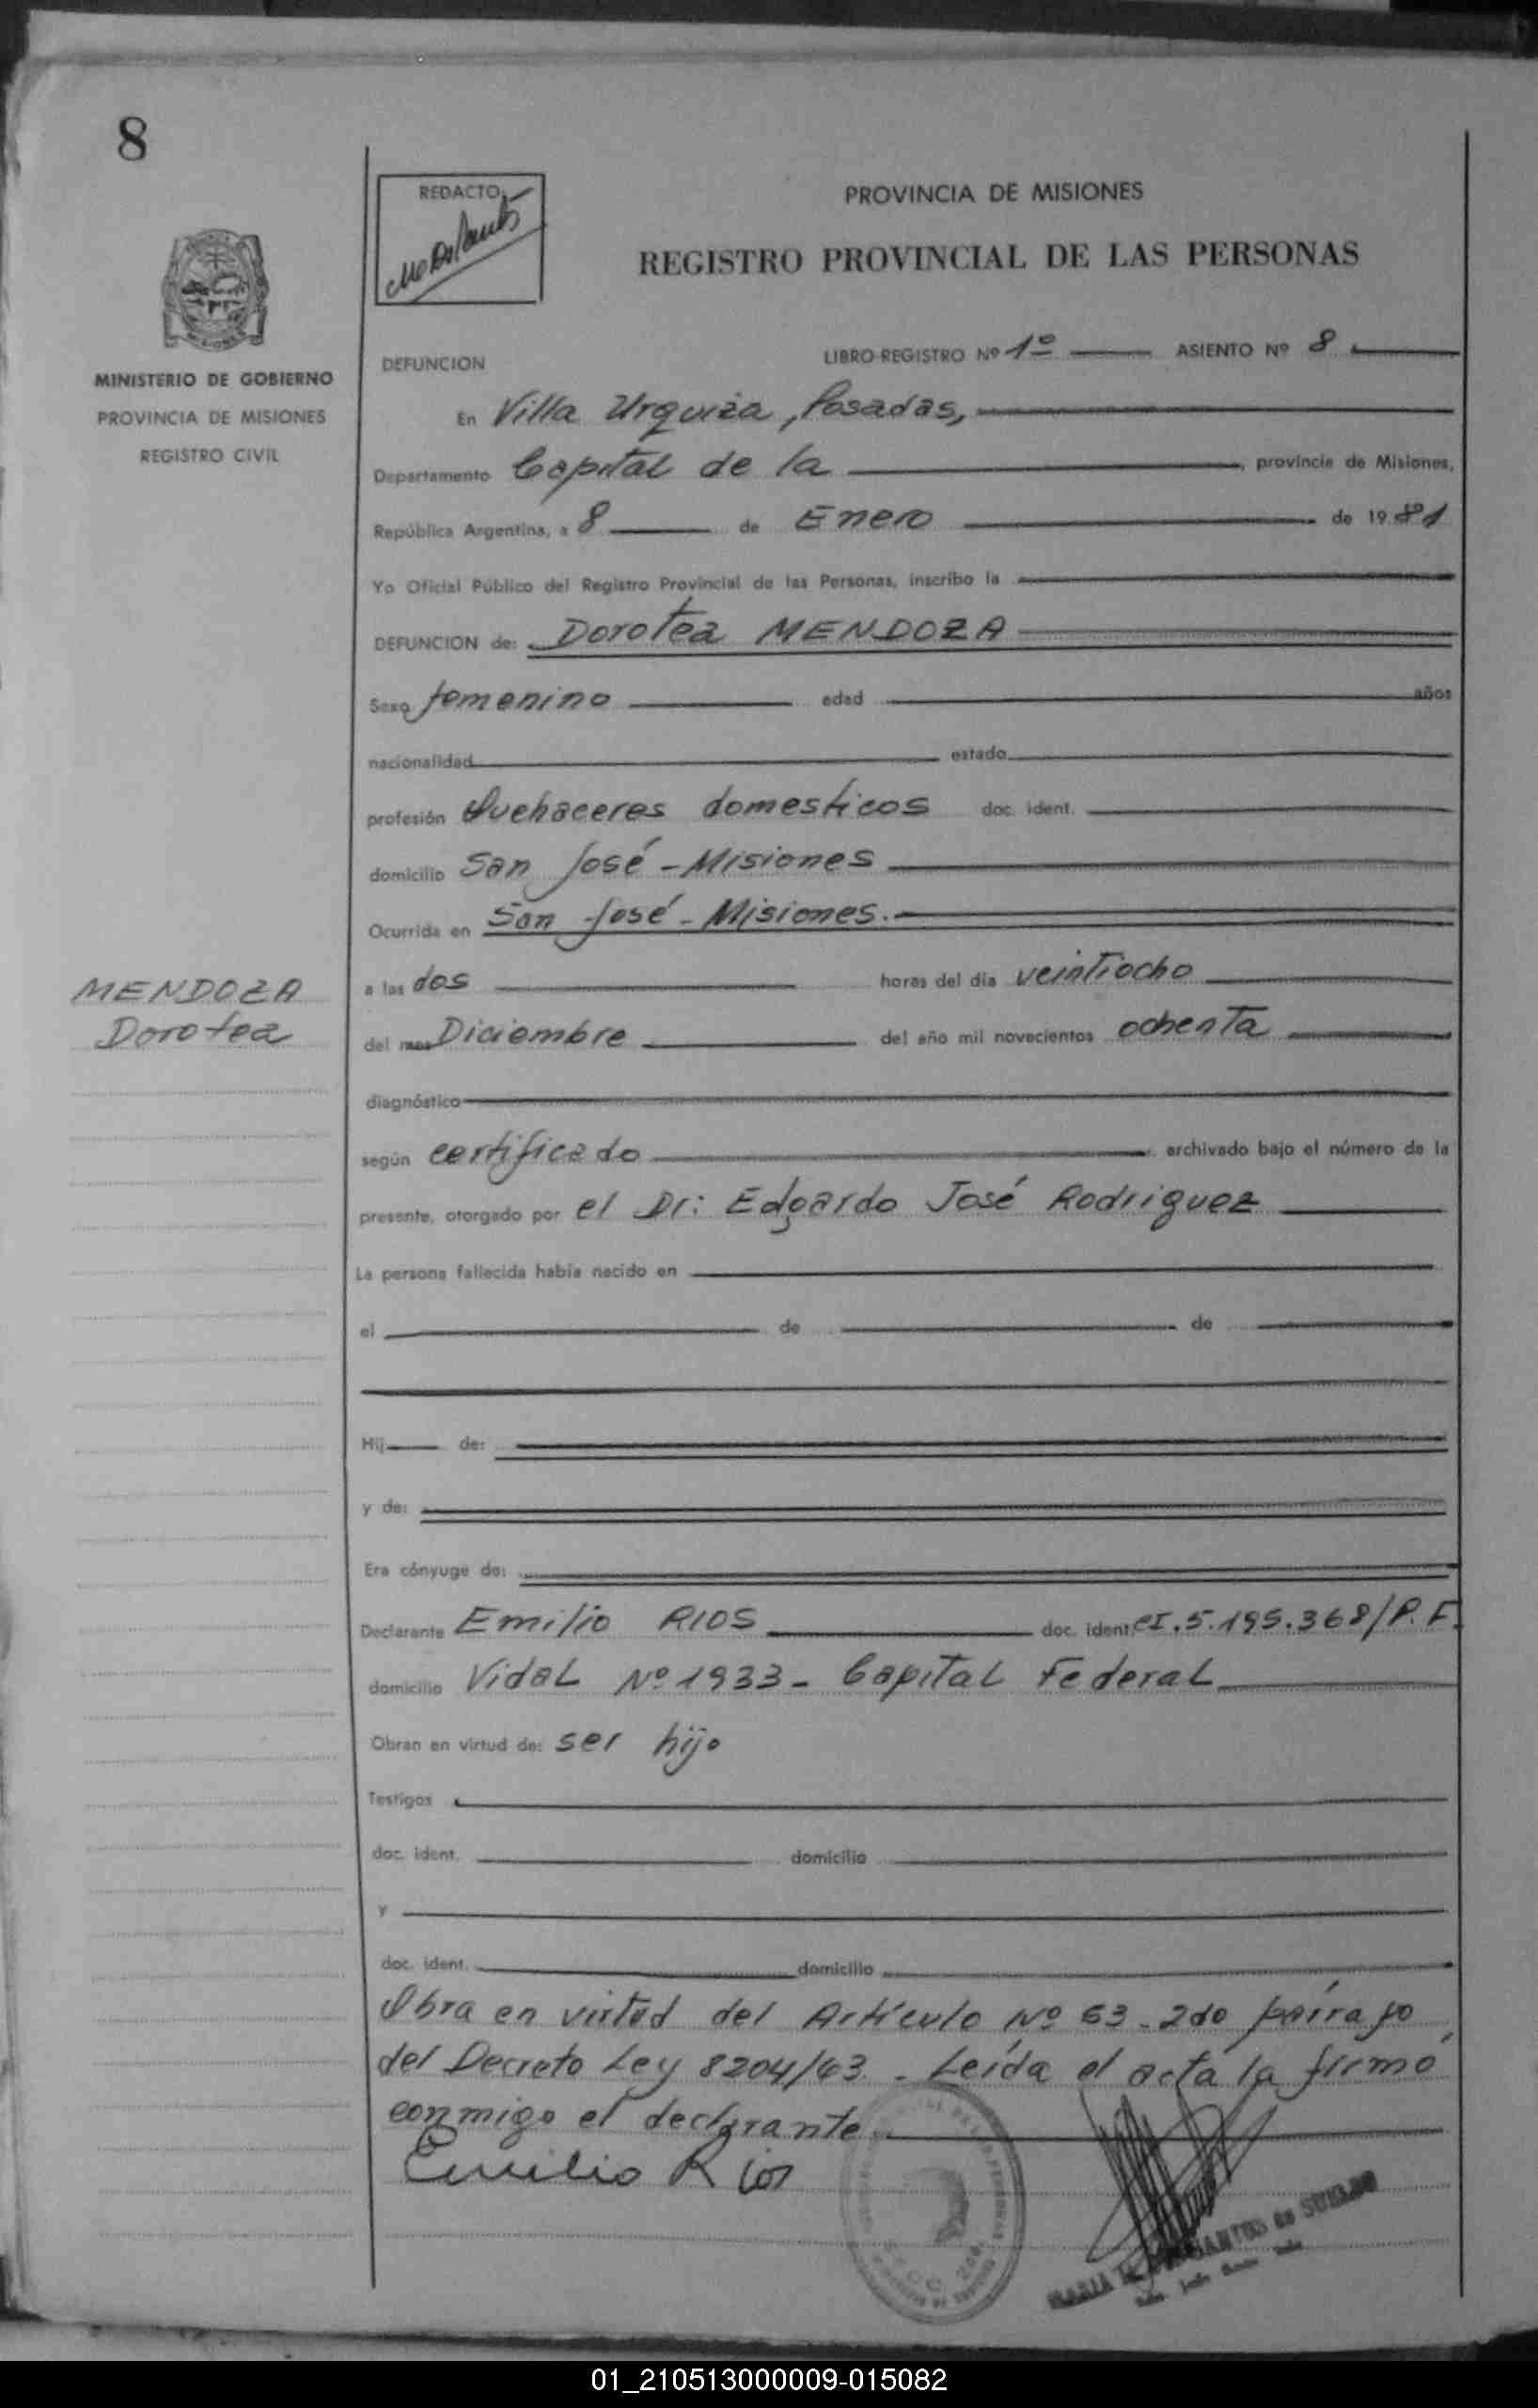 8
REDACTO
PROVINCIA DE MISIONES
REGISTRO PROVINCIAL DE LAS PERSONAS
MINISTERIO DE GOBIERNO
PROVINCIA DE MISIONES
REGISTRO CIVIL
DEFUNCION LIBRO-REGISTRO Nº 1º ASIENTO Nº 8
En Villa Urquiza, Posadas,
Departamento Capital de la , provincia de Misiones,
República Argentina, a 8 de Enero de 1981
Yo Oficial Público del Registro Provincial de las Personas, inscribo la
DEFUNCION de: Dorotea MENDOZA
Sexo femenino edad años
nacionalidad estado
profesión Quehaceres domesticos doc. ident.
domicilio San José - Misiones
Ocurrida en San José - Misiones.
MENDOZA
Dorotea
a las dos horas del día veintiocho
del mes Diciembre del año mil novecientos ochenta
diagnóstico
según certificado archivado bajo el número de la
presente, otorgado por el Dr: Edgardo José Rodriguez
La persona fallecida había nacido en
el de de
Hij de:
y de:
Era cónyuge de:
Declarante Emilio RIOS doc. ident. CI.5.195.368/P.F.
domicilio Vidal Nº 1933 - Capital Federal
Obran en virtud de: ser hijo
Testigos
doc. ident. domicilio
y
doc. ident. domicilio
Obra en virtud del Artículo Nº 63 - 2do párrafo
del Decreto Ley 8204/63. - Leída el acta la firmó
conmigo el declarante.
Emilio Rios
01_210513000009-015082